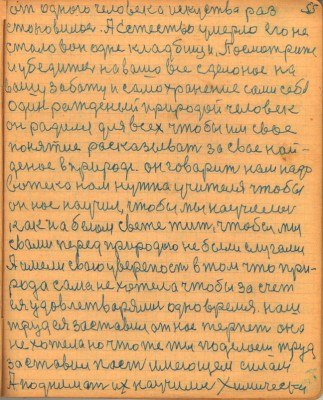 от одного человека искуства раз
становимся. А естество умерло его не
стало вон одне кладбищи. Посмотрите
и убедитесь на ваше все сделоное на
вашу заботу и само хранение сами себя
один рожденый природой человек
он родился для всех чтобы им свое
понятие расказиват за свае най-
деное в природе. он говорит нам надо
нам нужна учителя чтобы
он нас научил, чтобы мы научились
как на белом свете жит, чтобы мы
сваими перед природаю не были слугами
А имели свою увереност в том что при-
рода сама не хотела чтобы за счет
ея удовлетворями одно время. наш
труд ея заставил от нас терпет она
не хотела но что же ты поделаеш труд
заставил паст имеющем силам
А поднимат их научилис Химическ